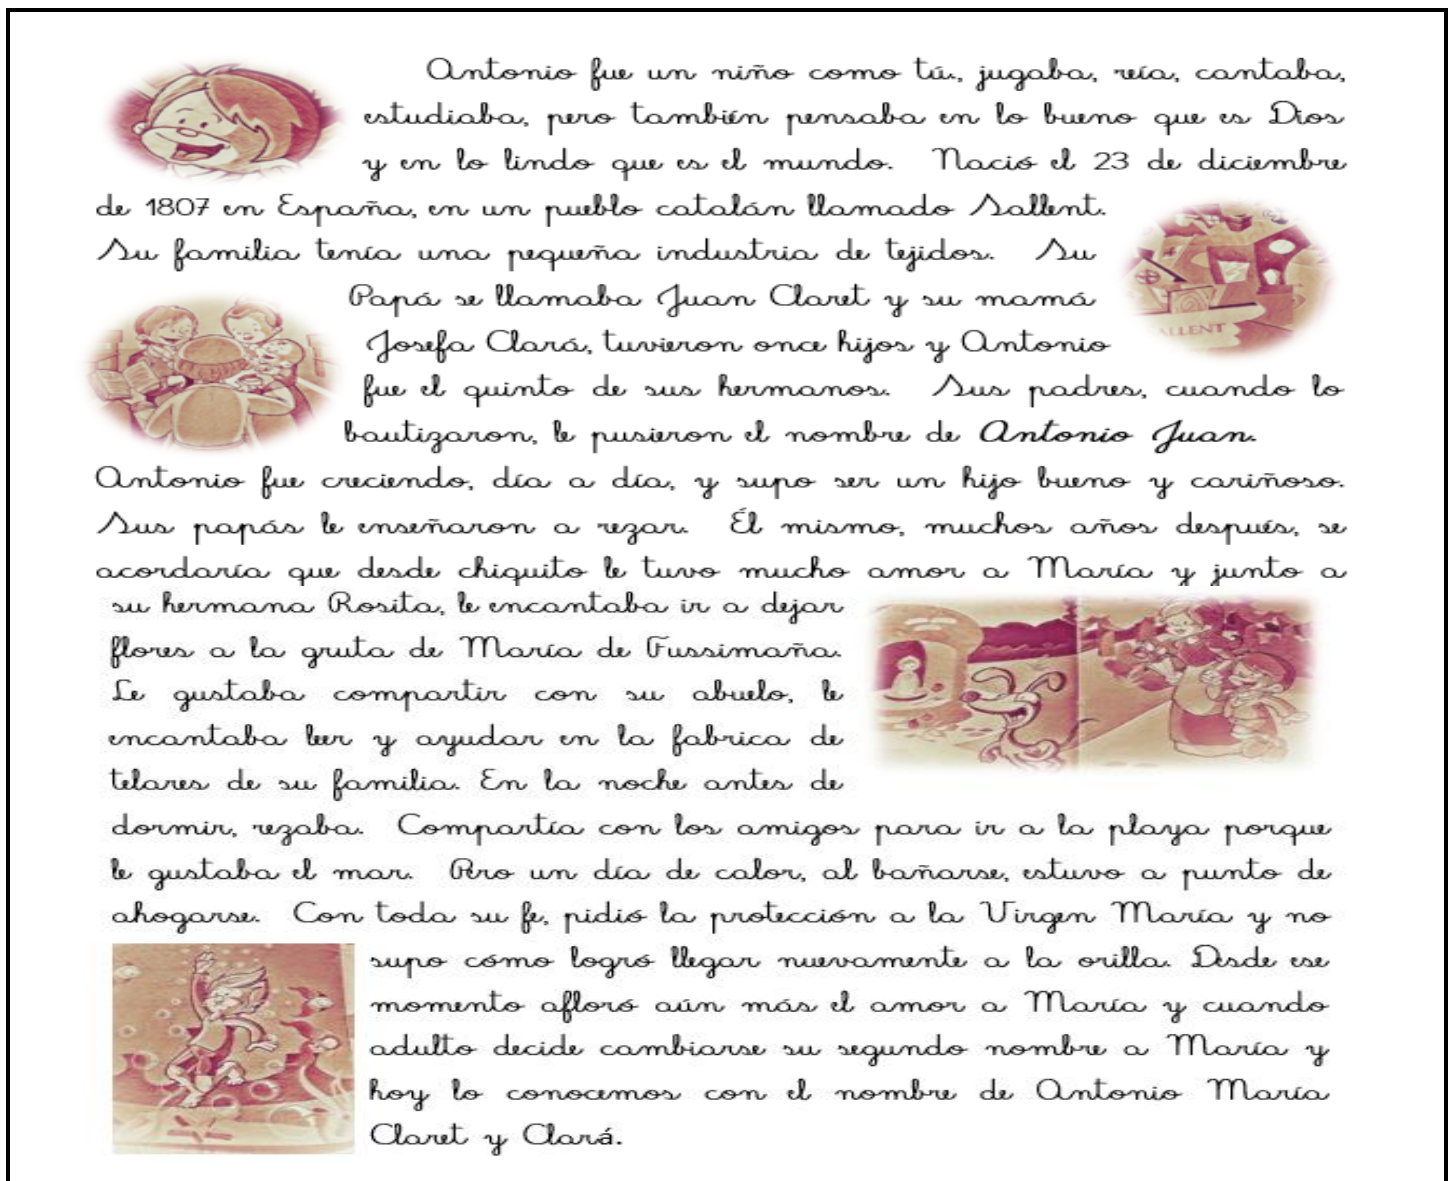 Antonio fue un niño como tú, jugaba, reía, cantaba,
estudiaba, pero también pensaba en lo bueno que es Dios
y en lo lindo que es el mundo. Nació el 23 de diciembre
de 1807 en España, en un pueblo catalán llamado Sallent.
Su familia tenía una pequeña industria de tejidos. Su
Papá se llamaba Juan Claret y su mamá
SALLENT
Josefa Clará, tuvieron once hijos y Antonio
fue el quinto de sus hermanos. Sus padres, cuando lo
bautizaron, le pusieron el nombre de Antonio Juan.
Antonio fue creciendo, día a día, y supo ser un hijo bueno y cariñoso.
Sus papás le enseñaron a rezar. Él mismo, muchos años después, se
acordaría que desde chiquito le tuvo mucho amor a María y junto a
su hermana Rosita, le encantaba ir a dejar
flores a la gruta de María de Fussimaña.
Le gustaba compartir con su abuelo, le
encantaba leer y ayudar en la fabrica de
telares de su familia. En la noche antes de
dormir, rezaba. Compartía con los amigos para ir a la playa porque
le gustaba el mar. Pero un día de calor, al bañarse, estuvo a punto de
ahogarse. Con toda su fe, pidió la protección a la Virgen María y no
supo cómo logró llegar nuevamente a la orilla. Desde ese
momento afloró aún más el amor a María y cuando
adulto decide cambiarse su segundo nombre a María y
hoy lo conocemos con el nombre de Antonio María
Claret y Clará.